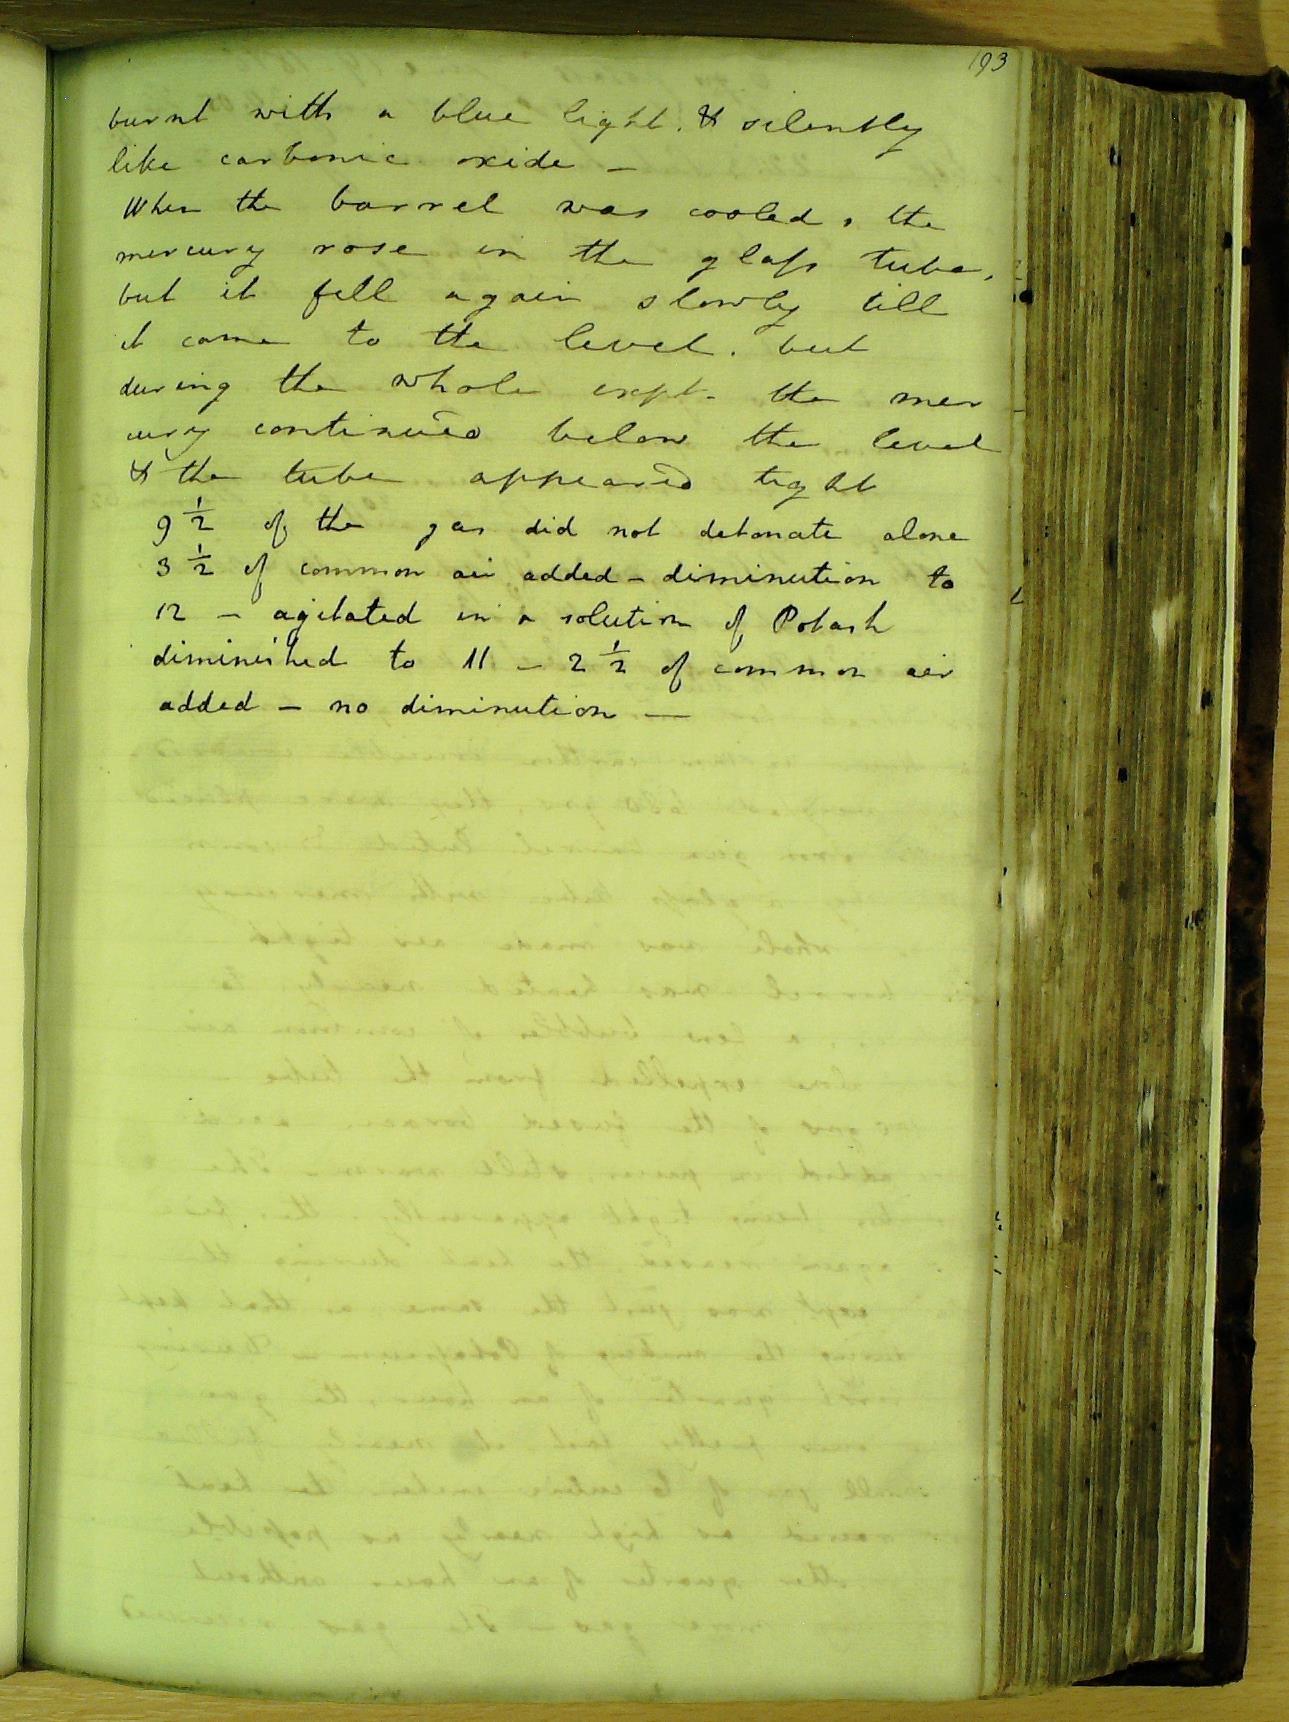 193
burnt with a blue light. & silently
like carbonic oxide –
When the barrel was cooled, the
mercury rose in the glass tube,
but it fell again slowly till
it came to the level. but
during the whole expt. the mer
cury continued below the level
& the tube appeared tight
9 1/2 of the gas did not detonate alone
3 1/2 of common air added – diminution to
12 – agitated in a solution of Potash
diminished to 11 – 2 1/2 of common air
added – no diminution —